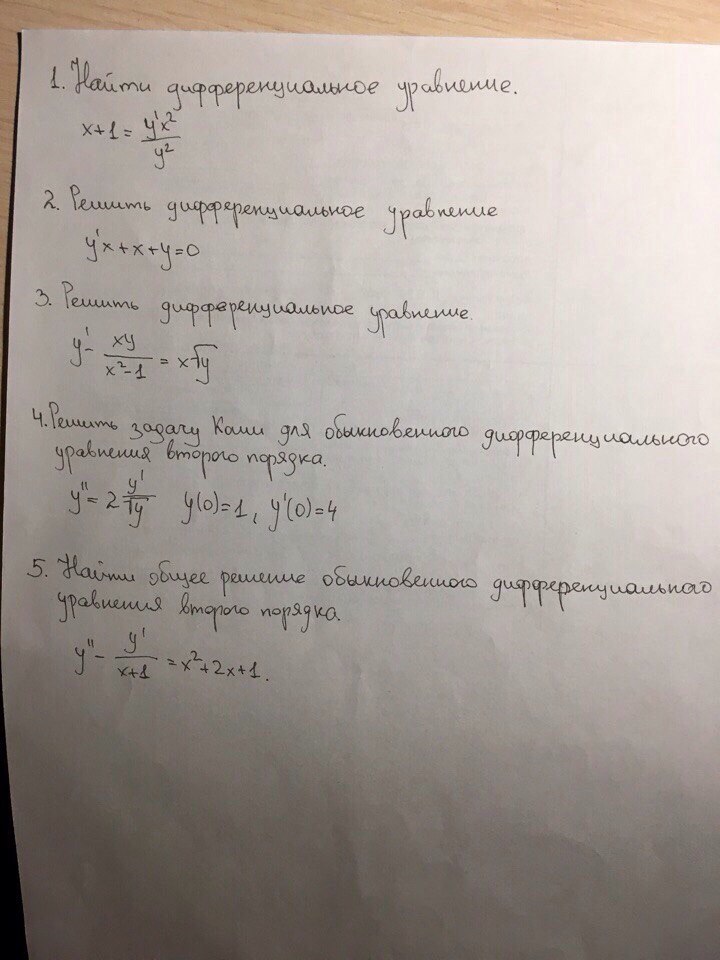 1. Найти дифференциальное уравнение.
x+1 = y'x²/y²
2. Решить дифференциальное уравнение
y'x+x+y=0
3. Решить дифференциальное уравнение.
y' - xy/(x²-1) = x√y
4. Решить задачу Коши для обыкновенного дифференциального
уравнения второго порядка.
y'' = 2 y'/√y   y(0)=1, y'(0)=4
5. Найти общее решение обыкновенного дифференциального
уравнения второго порядка.
y'' - y'/(x+1) = x²+2x+1.